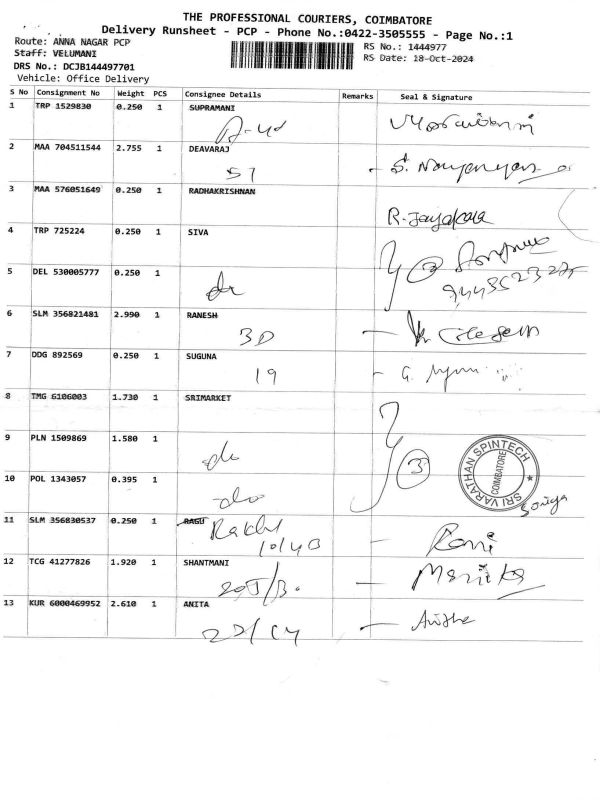 THE PROFESSIONAL COURIERS, COIMBATORE
Delivery Runsheet - PCP - Phone No.:0422-3505555 - Page No.:1
Route: ANNA NAGAR PCP
RS No.: 1444977
Staff: VELUMANI
RS Date: 18-Oct-2024
DRS No.: DCJB144497701
Vehicle: Office Delivery
S No Consignment No Weight PCS Consignee Details Remarks Seal & Signature
1 TRP 1529830 0.250 1 SUPRAMANI
2 MAA 704511544 2.755 1 DEAVARAJ
57 - S. Narayanan
3 MAA 576051649 0.250 1 RADHAKRISHNAN
R. Jayakala
4 TRP 725224 0.250 1 SIVA
2
5 DEL 530005777 0.250 1
do
6 SLM 356821481 2.990 1 RANESH
3D
7 DDG 892569 0.250 1 SUGUNA
19 - G.
8 TMG 6106003 1.730 1 SRIMARKET
9 PLN 1509869 1.580 1
do 3
SRI VARATHAN SPINTECH
COIMBATORE
10 POL 1343057 0.395 1
do
11 SLM 356830537 0.250 1 RAGU
- Rani
12 TCG 41277826 1.920 1 SHANTMANI
13 KUR 6000469952 2.610 1 ANITA
- Anitha